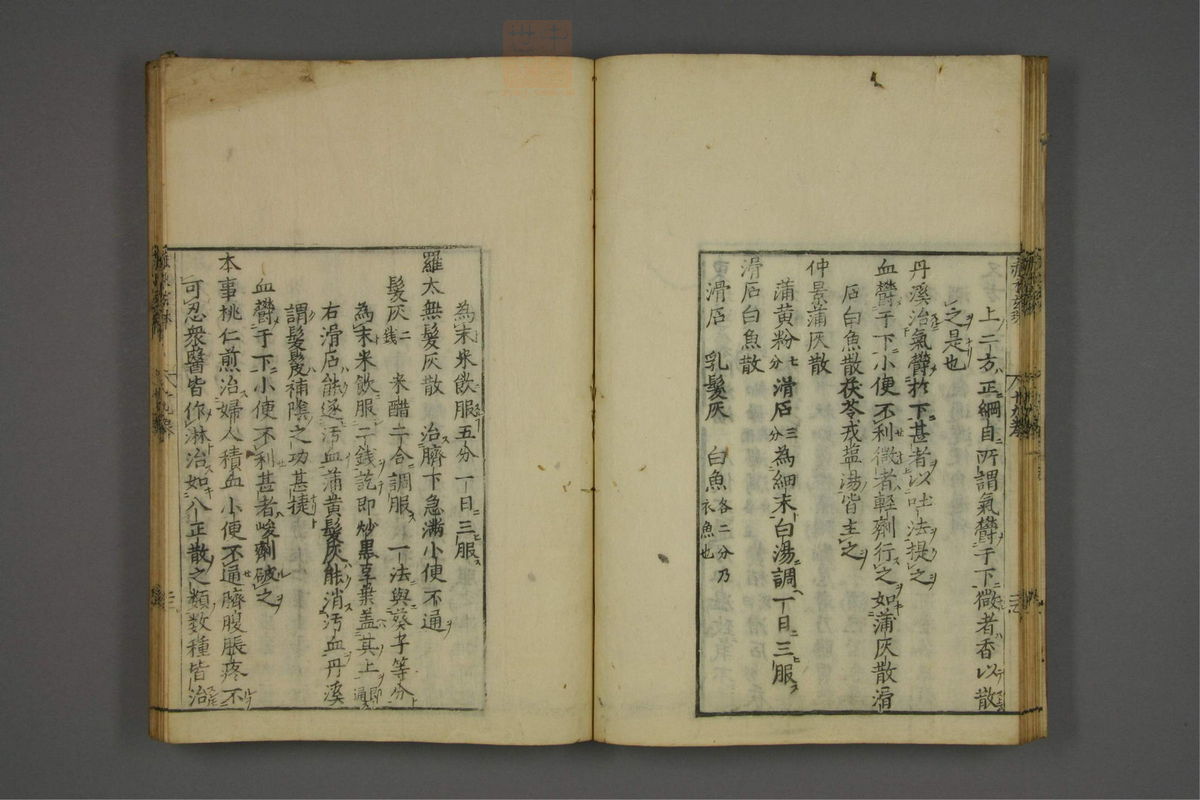 上二方正綱目所謂氣欝于下微者香以散
之是也
丹溪治氣欝於下甚者以吐法提之
血欝于下小便不利微者輕劑行之如蒲灰散滑
石白魚散茯苓戎塩湯皆主之
仲景蒲灰散
蒲黄粉七分滑石三分為細末白湯調丁日三服
滑石白魚散
滑石 乳髮灰 白魚各二分乃衣魚也
為末米飲服五分丁日三服
羅太無髮灰散 治臍下急滿小便不通
髮灰二錢 米醋二合調服 一法與葵子等分
為末米飲服二錢訖即炒黒豆葉盖其上即通
右滑石能遂汚血蒲黄髮灰能消汚血丹溪
謂髮髲補陰之功甚捷
血欝于下小便不利甚者峻劑破之
本事桃仁煎治婦人積血小便不通臍腹脹疼不
可忍衆醫皆作淋治如八正散之類数種皆治